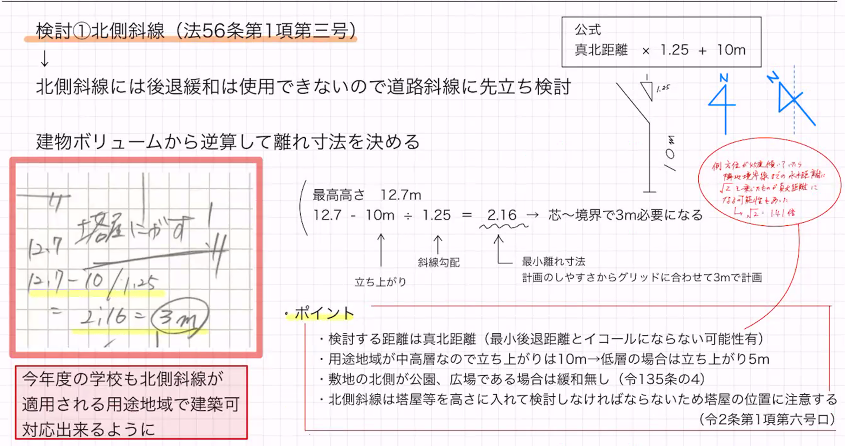 検討①北側斜線（法56条第1項第三号）
↓
北側斜線には後退緩和は使用できないので道路斜線に先立ち検討
建物ボリュームから逆算して離れ寸法を決める
公式
真北距離 × 1.25 + 10m
1
1.25
10m
N
N
例 方位が45度傾いていたら
隣地境界線までの水平距離に
√2を乗じたものが真北距離に
なる可能性もあった
↳ √2 = 1.41倍
塔屋にがす
12.7
12.7 - 10 / 1.25
= 2.16 = 3m
最高高さ 12.7m
12.7 - 10m ÷ 1.25 = 2.16 → 芯〜境界で3m必要になる
立ち上がり
斜線勾配
最小離れ寸法
計画のしやすさからグリッドに合わせて3mで計画
・ポイント
・検討する距離は真北距離（最小後退距離とイコールにならない可能性有）
・用途地域が中高層なので立ち上がりは10m→低層の場合は立ち上がり5m
・敷地の北側が公園、広場である場合は緩和無し（令135条の4）
・北側斜線は塔屋等を高さに入れて検討しなければならないため塔屋の位置に注意する
（令2条第1項第六号ロ）
今年度の学校も北側斜線が
適用される用途地域で建築可
対応出来るように